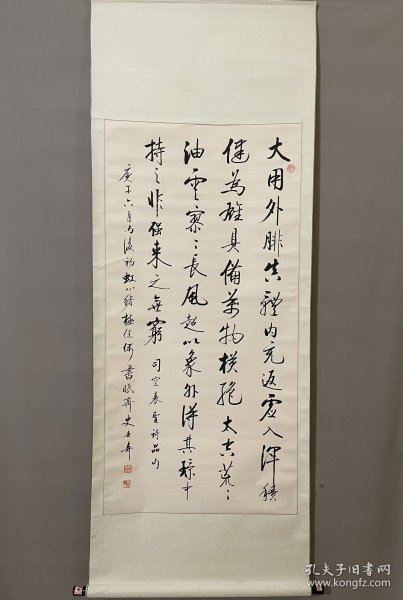 大用外腓真體内充返虛入渾積
健為雄具備萬物橫絶太空荒ミ
油雲寥ミ長風超以象外得其環中
持之非强来之無窮 司空表聖詩品句
庚午六月
書 史
孔夫子旧书网
www.kongfz.com